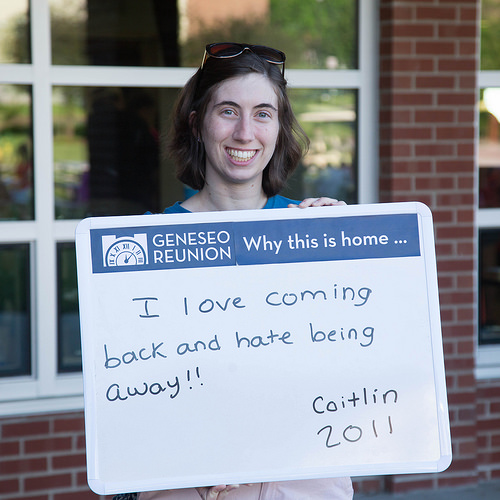 GENESEO
REUNION
Why this is home ...
I love coming
back and hate being
away!!
Caitlin
2011